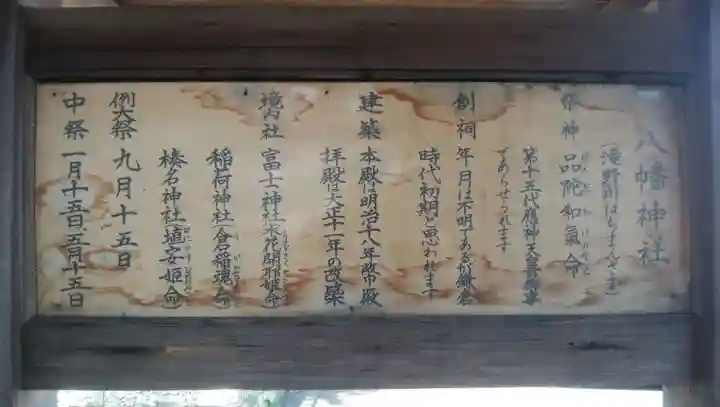 八幡神社
(滝野川はちまんさま)
祭神 品陀和氣命
第十五代應神天皇の事
であらせられます
創祠 年月は不明であるが鎌倉
時代初期と思われます
建築 本殿は明治十八年 幣殿
拝殿は大正十一年の改築
境内社 富士神社(木花開耶姫命)
稲荷神社(倉稲魂命)
榛名神社(埴安姫命)
例大祭 九月十五日
中祭 一月十五日、五月十五日